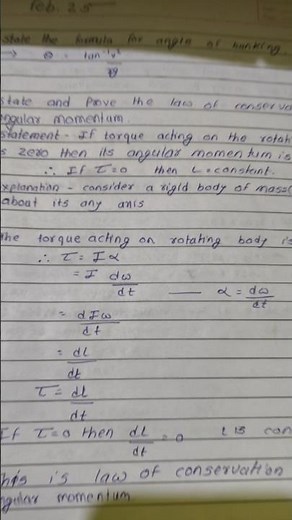 Feb. 25
state the formula for angle of banking
→ θ = tan⁻¹ v²
rg
state and Prove the law of conserva
ngular momentum.
statement - If torque acting on the rotati
s zero then its angular momentum is
∴ If τ=0 then L=constant.
xplanation - consider a rigid body of mass
about its any axis
the torque acting on rotating body is
∴ τ = Iα
= I dω/dt — α = dω/dt
= dIω/dt
= dL/dt
τ = dL/dt
If τ=0 then dL/dt = 0 L is con
this is law of conservation
ngular momentum